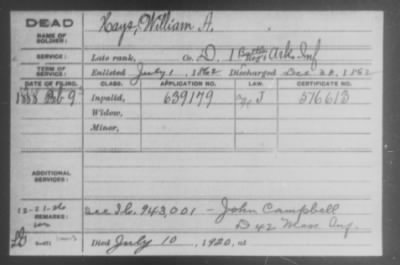 DEAD
NAME OF SOLDIER:
Hays, William A.
SERVICE:
Late rank, Co. D, 1 Batt'n Reg't Ark. Inf
TERM OF SERVICE:
Enlisted July 1, 1862 Discharged Dec 20, 1862
DATE OF FILING. CLASS. APPLICATION NO. LAW. CERTIFICATE NO.
1888 Feb 9 Invalid, 639179 J 576613
Widow,
Minor,
ADDITIONAL SERVICES:
REMARKS:
see I.C. 943,001 – John Campbell
D 42 Mass Inf.
Died July 10, 1920, at